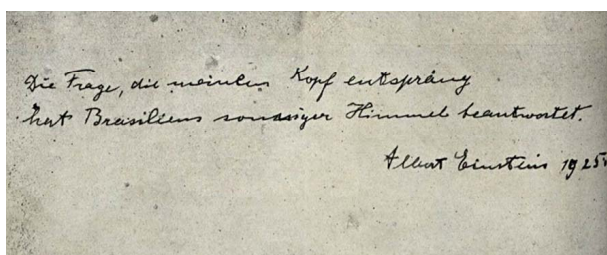 Die Frage, die meinem Kopf entsprang
hat Brasiliens sonniger Himmel beantwortet.
Albert Einstein 1925